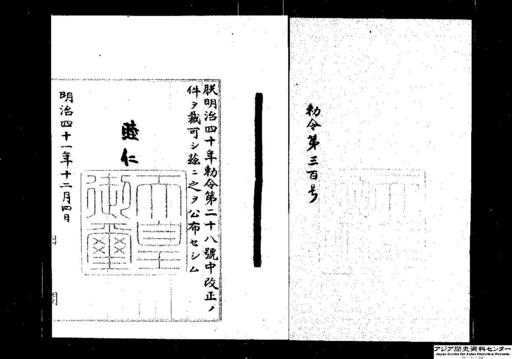 勅令第三百号
朕明治四十年勅令第二十八號中改正ノ
件ヲ裁可シ茲ニ之ヲ公布セシム
睦仁
天皇
御璽
明治四十一年十二月四日
アジア歴史資料センター
Japan Center for Asian Historical Records